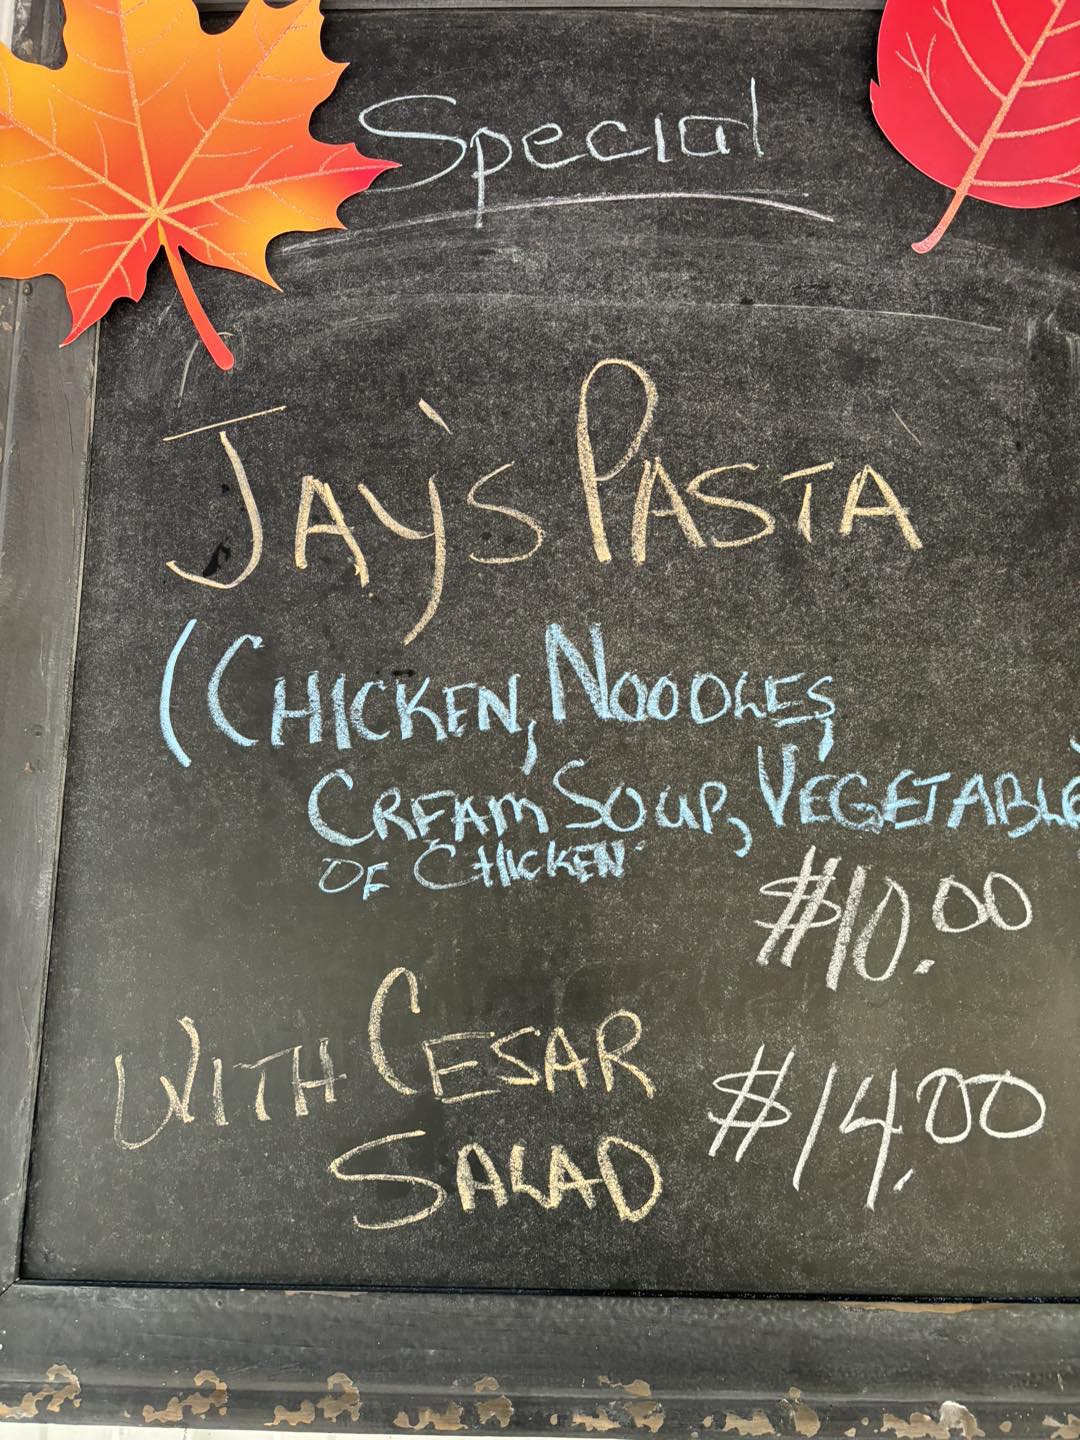 Special
JAY'S PASTA
(CHICKEN, NOODLES,
CREAM SOUP, VEGETABLE
OF CHICKEN
$10.00
WITH CESAR
SALAD
$14.00